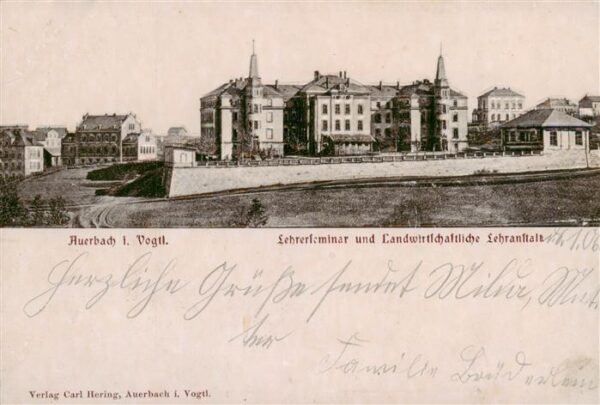 Auerbach i. Vogtl.
Lehrerseminar und Landwirtschaftliche Lehranstalt
1.06
Herzliche Grüße sendet Milda, Mut-
ter
Familie Brüderlein
Verlag Carl Hering, Auerbach i. Vogtl.